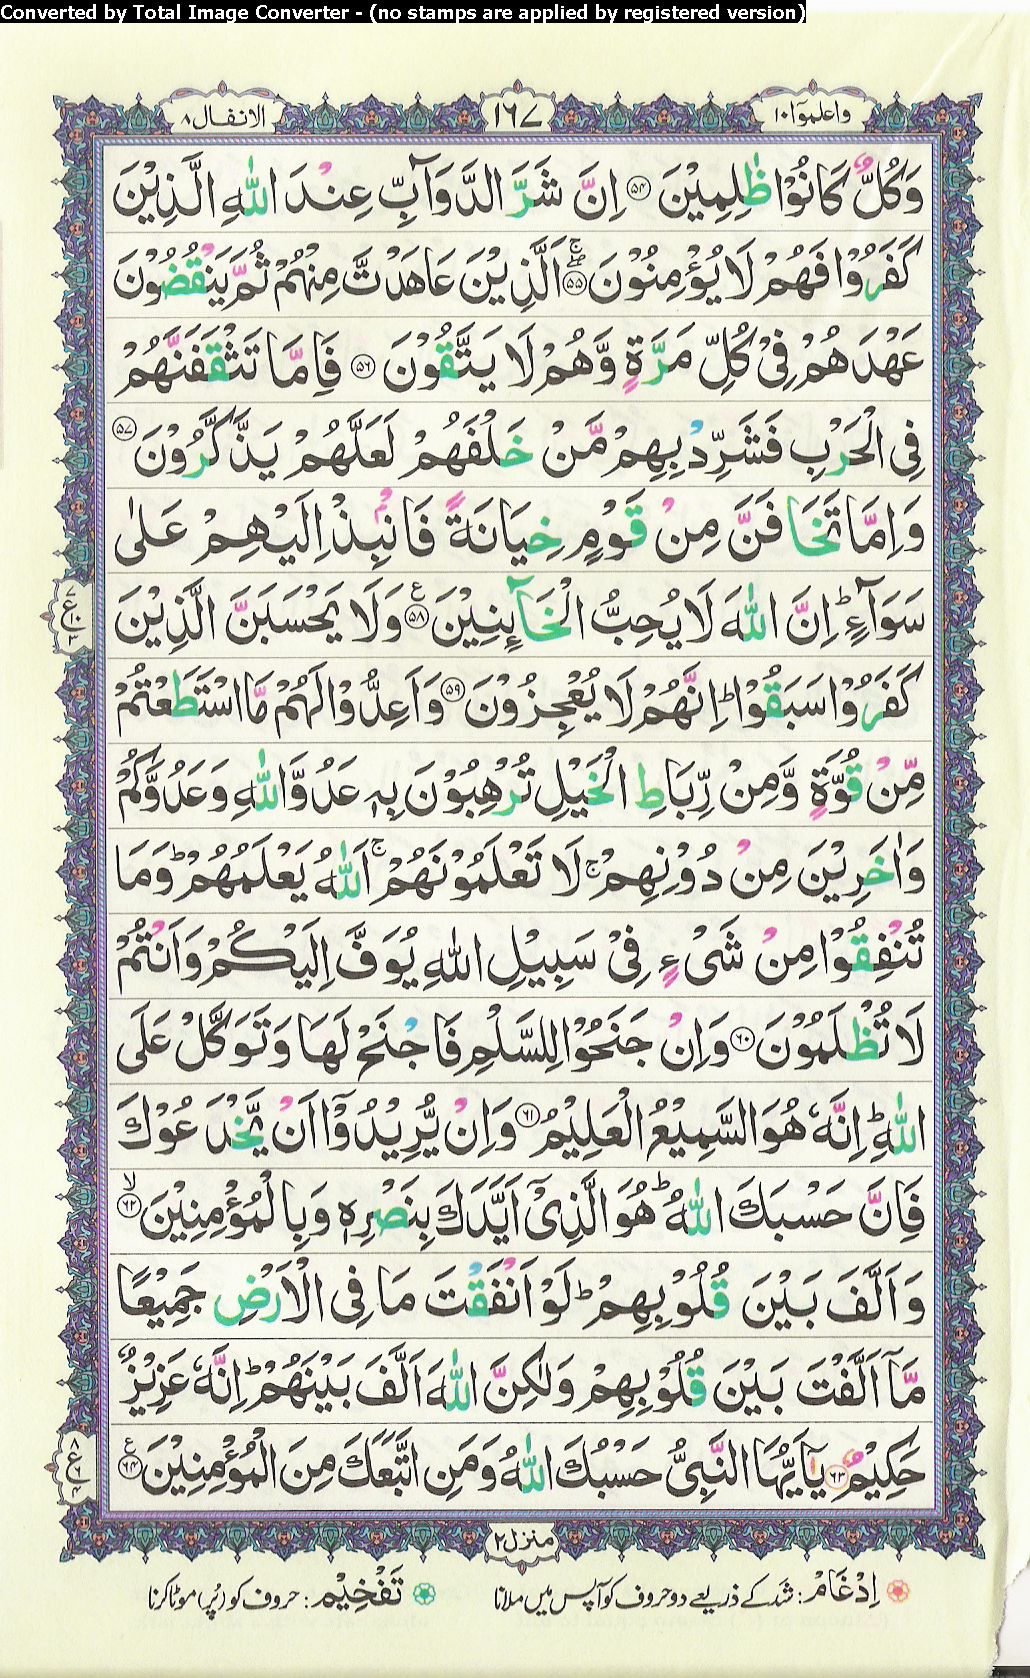 Converted by Total Image Converter - (no stamps are applied by registered version)
واعلموٓا ١٠
١٦٧
الانفال ٨
وَكُلٌّ كَانُوْا ظٰلِمِيْنَ ﴿۵۴﴾ اِنَّ شَرَّ الدَّوَآبِّ عِنْدَ اللّٰهِ الَّذِيْنَ
كَفَرُوْا فَهُمْ لَا يُؤْمِنُوْنَ ﴿۵۵﴾ۖۚ اَلَّذِيْنَ عَاهَدْتَّ مِنْهُمْ ثُمَّ يَنْقُضُوْنَ
عَهْدَهُمْ فِىْ كُلِّ مَرَّةٍ وَّهُمْ لَا يَتَّقُوْنَ ﴿۵۶﴾ فَاِمَّا تَثْقَفَنَّهُمْ
فِى الْحَرْبِ فَشَرِّدْ بِهِمْ مَّنْ خَلْفَهُمْ لَعَلَّهُمْ يَذَّكَّرُوْنَ ﴿۵۷﴾
وَاِمَّا تَخَافَنَّ مِنْ قَوْمٍ خِيَانَةً فَانْۢبِذْ اِلَيْهِمْ عَلٰى
سَوَآءٍ ؕ اِنَّ اللّٰهَ لَا يُحِبُّ الْخَآئِنِيْنَ ﴿۵۸﴾ ع وَلَا يَحْسَبَنَّ الَّذِيْنَ
كَفَرُوْا سَبَقُوْا ؕ اِنَّهُمْ لَا يُعْجِزُوْنَ ﴿۵۹﴾ وَاَعِدُّوْا لَهُمْ مَّا اسْتَطَعْتُمْ
مِّنْ قُوَّةٍ وَّمِنْ رِّبَاطِ الْخَيْلِ تُرْهِبُوْنَ بِهٖ عَدُوَّ اللّٰهِ وَعَدُوَّكُمْ
وَاٰخَرِيْنَ مِنْ دُوْنِهِمْ ۚ لَا تَعْلَمُوْنَهُمْ ۚ اَللّٰهُ يَعْلَمُهُمْ ؕ وَمَا
تُنْفِقُوْا مِنْ شَىْءٍ فِىْ سَبِيْلِ اللّٰهِ يُوَفَّ اِلَيْكُمْ وَاَنْتُمْ
لَا تُظْلَمُوْنَ ﴿۶۰﴾ وَاِنْ جَنَحُوْا لِلسَّلْمِ فَاجْنَحْ لَهَا وَتَوَكَّلْ عَلَى
اللّٰهِ ؕ اِنَّهٗ هُوَ السَّمِيْعُ الْعَلِيْمُ ﴿۶۱﴾ وَاِنْ يُّرِيْدُوْٓا اَنْ يَّخْدَعُوْكَ
فَاِنَّ حَسْبَكَ اللّٰهُ ؕ هُوَ الَّذِىْٓ اَيَّدَكَ بِنَصْرِهٖ وَبِالْمُؤْمِنِيْنَ ﴿۶۲﴾ۙ
وَاَلَّفَ بَيْنَ قُلُوْبِهِمْ ؕ لَوْ اَنْفَقْتَ مَا فِى الْاَرْضِ جَمِيْعًا
مَّآ اَلَّفْتَ بَيْنَ قُلُوْبِهِمْ وَلٰكِنَّ اللّٰهَ اَلَّفَ بَيْنَهُمْ ؕ اِنَّهٗ عَزِيْزٌ
حَكِيْمٌ ﴿۶۳﴾ يٰٓاَيُّهَا النَّبِىُّ حَسْبُكَ اللّٰهُ وَمَنِ اتَّبَعَكَ مِنَ الْمُؤْمِنِيْنَ ﴿۶۴﴾ ع
منزل ٢
اِدْغَامْ: شَد کے ذریعے دو حروف کو آپس میں ملانا
تَفْخِيْم: حروف کو (پُر) موٹا کرنا